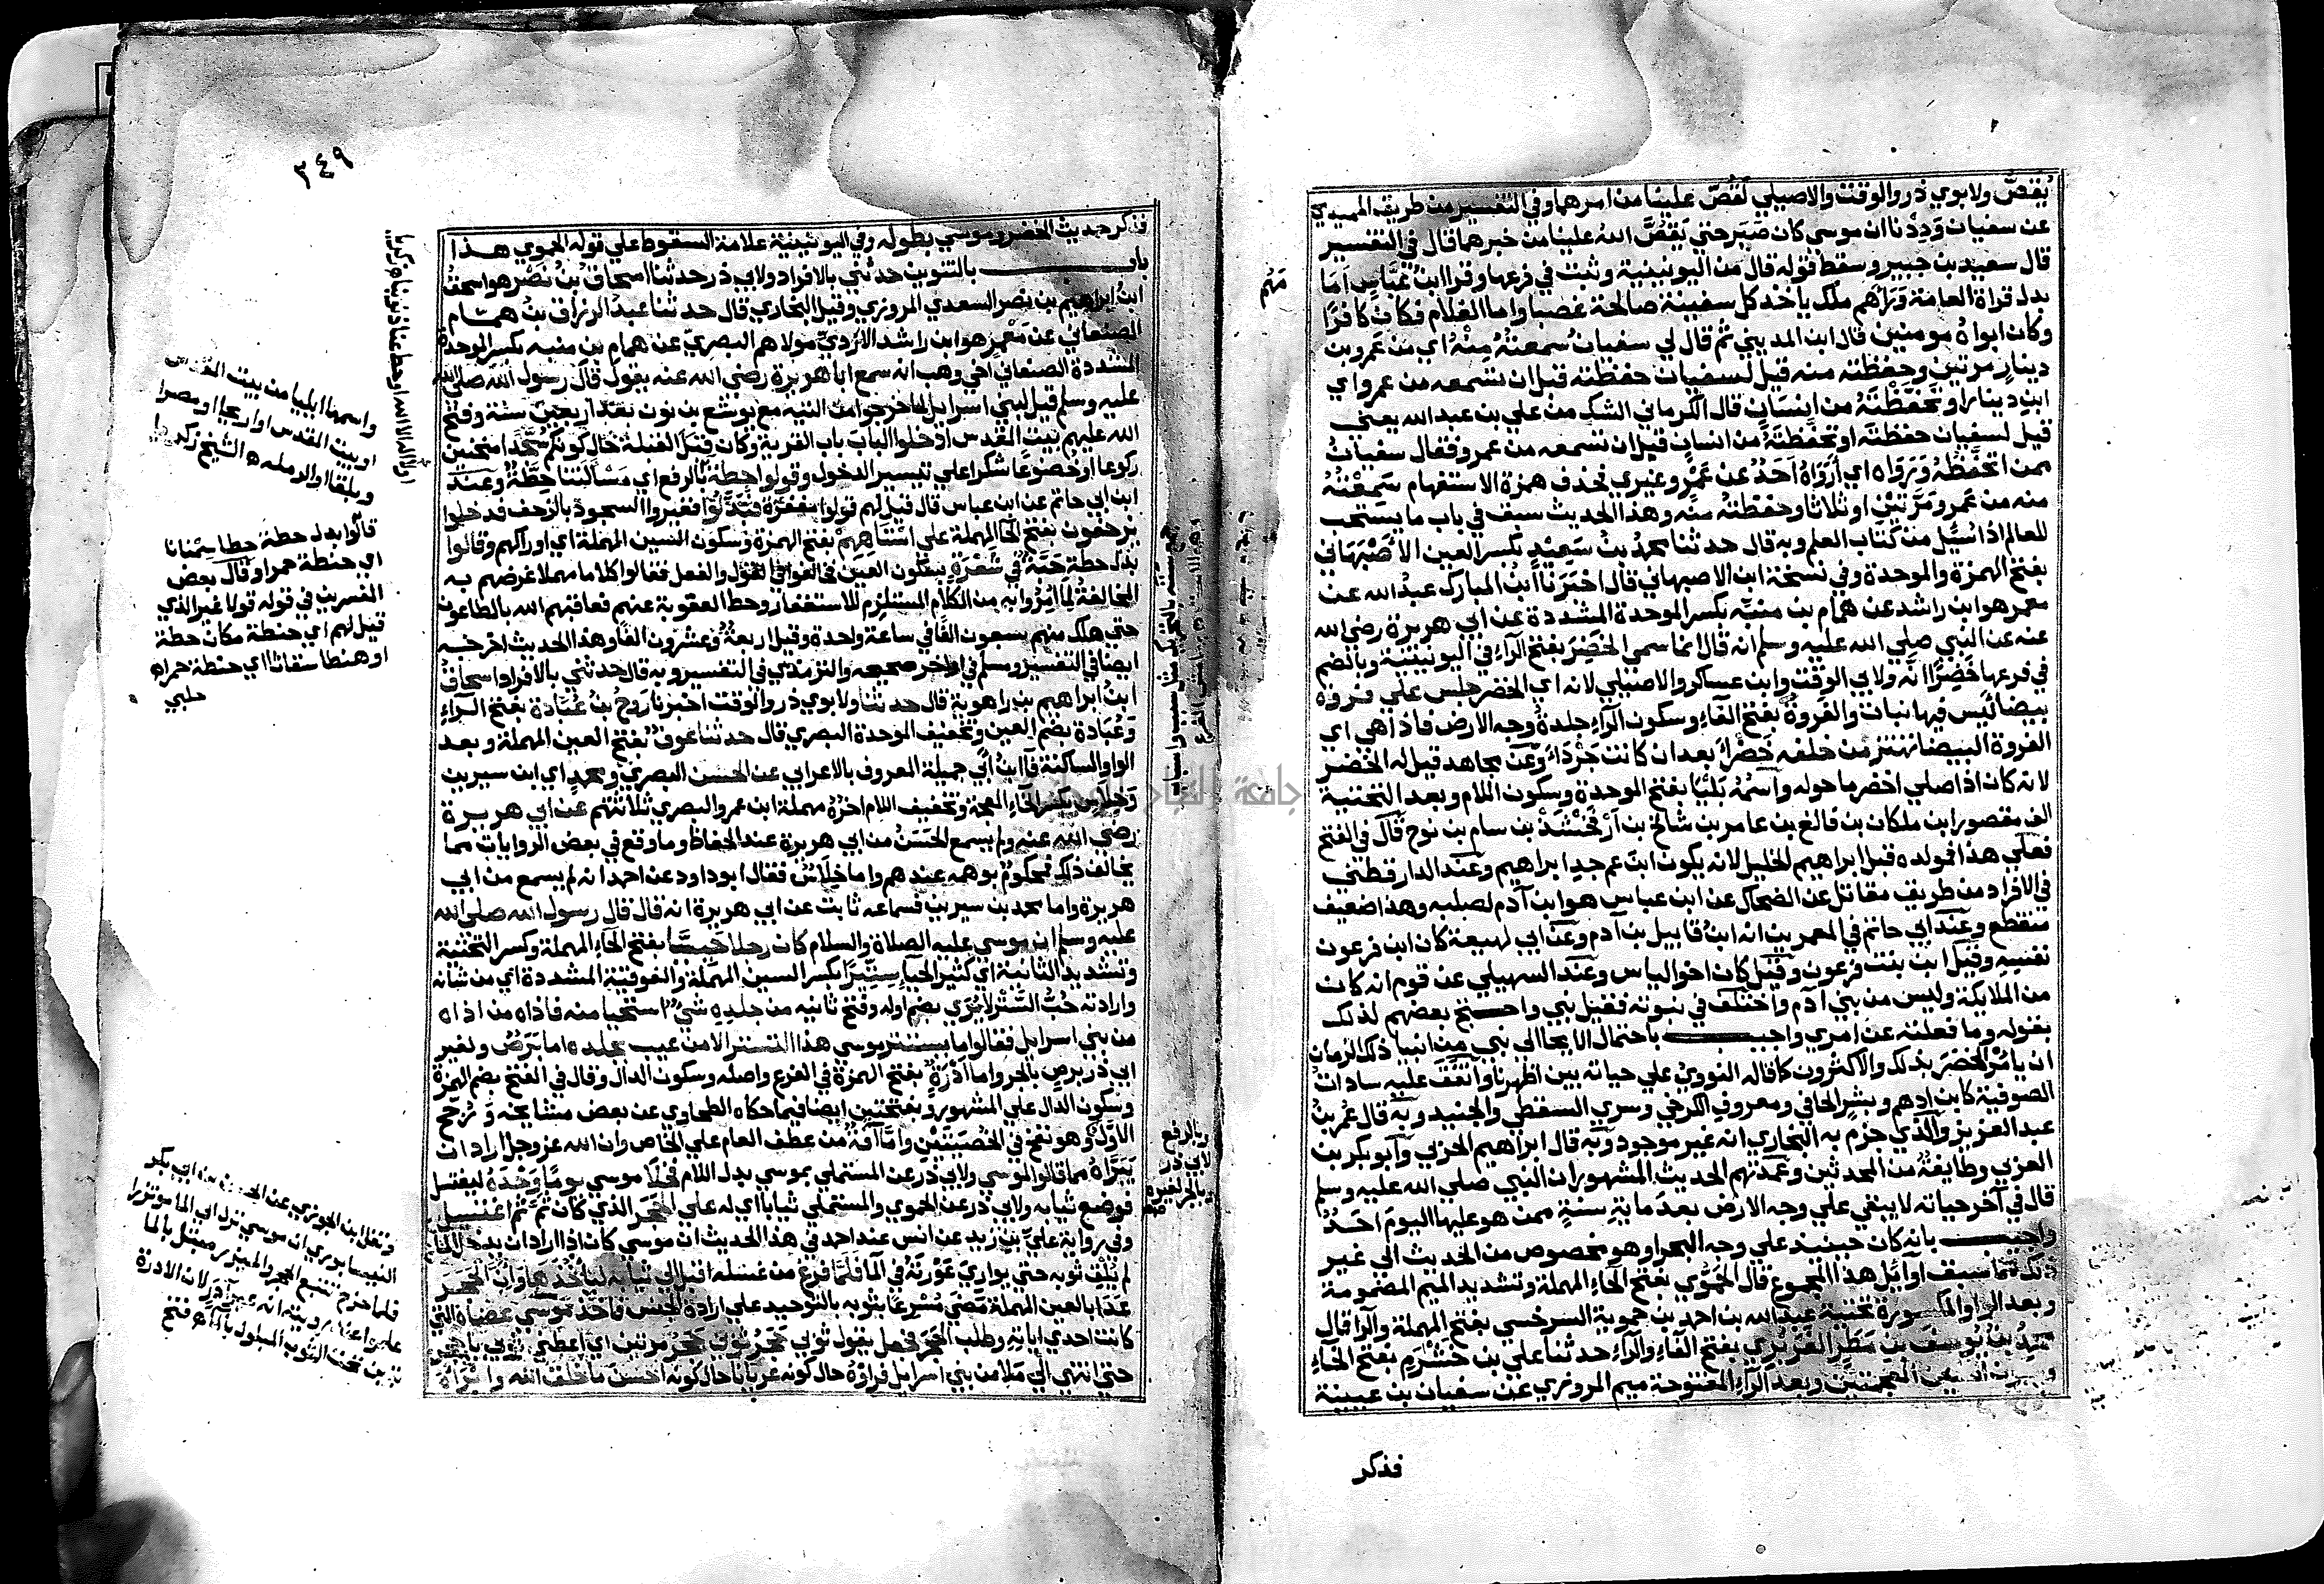 يُقَصَّ ولابوي ذر والوقت والاصيلي لقُصّ علينا من امرهما وفي التفسير من طريق الحميدي
عن سفيان وَدِدْنا ان موسى كان صَبَر حتي يَقُصَّ الله علينا من خبرهما قال في التفسير
قال سعيد بن جبير وسقط قوله قال من اليونينية وثبت في فرعها وقرا ابنُ عَبّاسٍ اما
بدل قراة العامة وَرَاهم ملك ياخذ كل سفينة صالحة غصبا واما الغلام فكان كافرًا
وكان ابواهُ مومنين قال ابن المديني ثم قال لي سفيانُ سمعتُهُ مِنْهُ اي من عَمرو بن
دينارٍ مرتين وحفظته منه قيل لسفيان حفظته قبل ان تسمعه من عمرو اي
ابن دينار او تَحَفَّظْتَهُ من اِنسَانٍ قال الكرماني الشك من علي بن عبد الله يعني
قيل لسفيان حفظته او تحفَّظتَهُ من انسانٍ قبل ان تسمعه من عمرو فقال سفيانُ
ممن اتحفَّظُهُ وَرَوَاه اي أَرَوَاهُ اَحَدٌ عن عَمْرٍو غيري فحذف همزة الاستفهام سَمِعْتُهُ
منه من عَمرو مَرَّتيْن او ثلاثا وحفظتهُ منه وهذا الحديث سبق في باب ما يستحب
للعالم اذا سُئِل من كتاب العلم وبه قال حدثنا محمد بنُ سَعِيْدٍ بكسر العين الاصْبَهَاني
بفتح الهمزة والموحدة وفي نسخة ابن الاصبهاني قال اخبَرنا ابنُ المبارك عبدُ الله عن
معمر هو ابن راشد عن همام بن منبّه بكسر الموحدة المشددة عن ابي هريرة رضي الله
عنه عن النبي صلي الله عليه وسلم انه قال انما سمي الخضِرَ بفتح الراء في اليونينية وبالضم
في فرعها خَضِرًا انَّه ولابي الوقت وابن عساكر والاصيلي لانه اي الخضر جلس علي فروة
بيضا ليس فيها نبات والفروة بفتح الفاء وسكون الراء جلدة وجه الارض فاذا هي اي
الفروة البيضا تهتز من خلفه خَضراً بعد ان كانت جَرْدَاء وعن مجاهد قيل له الخضر
لانه كان اذا صلي اخضر ما حوله واسمهُ بَلْيَا بفتح الموحدة وسكون اللام وبعد التحتية
الف مقصور ابن ملكان بن فالغ بن عامر بن شالخ بن اَرْفَخْشَذْ بن سام بن نوح قال في الفتح
فعلي هذا فمولده قبل ابراهيم الخليل لانه يكون ابن عم جد ابراهيم وعند الدارقطني
في الافراد من طريق مقاتل عن الضحاك عن ابن عباس هو ابن آدم لصلبه وهذا ضعيف
منقطع وعند ابي حاتم في المعمرين انه ابنُ قابيل بن آدم وعن ابن لهيعة كان ابن فرعون
نفسه وقيل ابن بنت فرعون وقيل كان اخو الياس وعند السهيلي عن قوم انه كان
من الملايكة وليس من بني ادم واختلف في نبوته فقيل نبي واحتج بعضهم لذلك
بقوله وما فعلته عن امري واجيب باحتمال الايحا الي نبي من انبيا ذلك الزمان
ان يامُرَ الخضر بذلك والاكثرون كما قاله النووي علي حياته بين اظهرنا واتفق عليه سادات
الصوفية كابن ادهم وبشر الحافي ومعروف الكرخي وسري السقطي والجنيد وبه قال عُمر بنُ
عبد العزيز والذي جزم به البخاري انه غير موجود وبه قال ابراهيم الحربي وابو بكر بن
العربي وطايفة من المحدثين وعمدتهم الحديث المشهور ان النبي صلي الله عليه وسلم
قال في آخر حياته لا يبقي علي وجه الارض بعد ماية سنةٍ ممن هو عليها اليوم اَحَدٌ
واجيب بانه كان حينيذ علي وجه البحر او هو مخصوص من الحديث الي غير
ذلك مما سبق اوائل هذا المجموع قال الحَمُّوي بفتح الحاء المهملة وتشديد الميم المضمومة
وبعد الواو المكسورة تحتية عبد الله بن احمد بن حموية السرخسي بفتح المهملة والرا قال
محمد بن يوسُف بن مَطَرٍ الفَرَبْري بفتح الفاء والراء حدثنا علي بن خشرم بفتح الخاء
وسكون الشين المعجمتين وبعد الراء المفتوحة ميم المروزي عن سفيان بن عيينة
فذكر
مَهُم
٣٤٩
فذكر حديث الخضر وموسي بطوله وفي اليونينية علامة السقوط علي قوله الحموي هذا
باب بالتنوين حدثني بالافراد ولابي ذر حدثنا اسحاق بنُ نَصْر هو اسحقُ
ابنُ ابراهيم بن نصر السعدي المروزي وقيل البخاري قال حدثنا عبدُ الرزاق بنُ همام
الصنعاني عن مَعْمَر هو ابن راشد الازديّ مولاهم البصري عن همام بن منبه بكسر الموحدة
المشددة الصنعاني اخي وهب انه سمع ابا هريرة رضي الله عنه يقول قال رسول الله صلي الله
عليه وسلم قيل لبني اسرايل لما خرجوا من التيه مع يوشع بن نون بعد اربعين سنة وفتح
الله عليهم بيت المقدس ادخلوا الباب باب القرية وكان قِبَل القبلة حال كونكم سُجَّدًا منحنين
ركوعا او خضوعًا شكرا علي تيسير الدخول وقولوا حطة بالرفع اي مَسْألتنا حِطَّة وعند
ابن ابي حاتم عن ابن عباس قال قيل لهم قولوا مغفرة فبَدَّلُوا فغيروا السجود بالزحف فدخلوا
يزحفون بفتح الحا المهملة علي اسْتَاهِهِمْ بفتح الهمزة وسكون السين المهملة اي اوراكهم وقالوا
بدل حطة حَبَّةٌ في شَعْرَة بسكون العين فخالفوا في القول والفعل فقالوا كلاما مهملا غرضهم به
المخالفة لما امروا به من الكلام المستلزم للاستغفار وحط العقوبة عنهم فعاقبهم الله بالطاعون
حتي هلك منهم سبعون الفا في ساعة واحدة وقيل اربعة وعشرون الفا وهذا الحديث اخرجه
ايضا في التفسير ومسلم في اخر صحيحه والترمذي في التفسير وبه قال حدثني بالافراد اسحاق
ابنُ ابراهيم بن راهوية قال حدثنا ولابوي ذر والوقت اخبرنا رَوْحُ بنُ عُبَادَة بفتح الراء
وعُبَادة بضم العين وتخفيف الموحدة البصري قال حدثنا عوفٌ بفتح العين المهملة وبعد
الواو الساكنة فا ابنُ ابي جميلة المعروف بالاعرابي عن الحسن البصري ومحمدٍ اي ابن سيرين
وخِلَاسٍ بكسر الخاء المعجمة وتخفيف اللام اخره مهملة ابن عمرو البصري ثلاثتهم عن ابي هريرة
رضي الله عنه ولم يسمع الحَسَنُ من ابي هريرة عند الحفاظ وما وقع في بعض الروايات مما
يخالف ذلك فمحكومٌ بوهمه عندهم واما خِلَاسٌ فقال ابو داود عن احمد انه لم يسمع من ابي
هريرة واما محمد بن سيرين فسماعه ثابت عن ابي هريرة انه قال قال رسول الله صلي الله
عليه وسلم ان موسي عليه الصلاة والسلام كان رجلا حَيِيًّا بفتح الحاء المهملة وكسر التحتية
وتشديد الثانية اي كثير الحيا سِتِّيرًا بكسر السين المهملة والفوقية المشددة اي من شانه
وارادته حُبُّ السَّتْر لا يُرَي بضم اوله وفتح ثانيه من جلدِهِ شيءٌ استحيا منه فاذاه من اذاه
من بني اسرايل فقالوا ما يستتر موسي هذا التستر الا من عيب بجلده اما بَرَصٌ ولغير
ابي ذر برصٍ بالجر واما اَدَرَةٌ بفتح الهمزة في الفرع واصله وسكون الدال وقال في الفتح بضم الهمزة
وسكون الدال علي المشهور وبفتحتين ايضا فيما حكاه الطحاوي عن بعض مشايخه ورُجِّح
الاوَّلُ وهو نفخ في الخُصيَتَيْن وامَّا آفَةٌ من عطف العام علي الخاص وان الله عز وجل اراد ان
يُبَرِّاهُ مما قالوا لموسي ولابي ذر عن المستملي بموسي بدل اللام فخلَا موسي يومًا وَحْدَهُ ليغتسل
فوضع ثيابه ولابي ذر عن الحموي والمستملي ثيابا اي له علي الحَجَر الذي كان ثَمَّ ثم اغتسل
وفي رواية علي بن زيد عن انس عند احمد في هذا الحديث ان موسي كان اذا اراد ان يدخل الماء
لم يُلقِ ثوبه حتي يواريَ عَوْرَته في الما فلمَّا فرغ من غسله اقبل الي ثيابه ليأخُذَها وانّ الحَجَر
عَدَا بالعين المهملة مَضَي مُسْرِعًا بثوبه بالتوحيد علي ارادة الجنس فاخذ موسَي عصاه التي
كانت احدي اياته وطلب الحَجَر فجعل يقول ثوبي حَجَرُ ثوبي حَجَرُ مرتين اي اعطني ثوبي يا حجر
حتي انتهي الي مَلَا من بني اسرايل فراوهُ حال كونه عريانا حال كونه احسنَ ما خلق الله وابرَاهُ
واسمها ايليا من بيت المقدس
او بيت المقدس او اريحا او مصر او
وبلقا او الرملة ه الشيخ زكريا
قالوا بدل حطة حطا سمتانا
اي حنطة حمرا وقال بعض
المفسرين في قوله قولا غير الذي
قيل لهم اي حنطة مكان حطة
او هنطا سقاثا اي حنطة حمراه
حلبي
بالرفع
لابي ذر
وبالجر لغيره
ونقل ابن الجوزي عن الحسن بن ابي بكر
النيسابوري ان موسي نزل الي الما موتزرا
فلما خرج تتبع الحجر والميزر مبتل بالما
علموا عند رويته انه غير آدر لان الادرة
تبين تحت الثوب المبلول بالما ه فتح